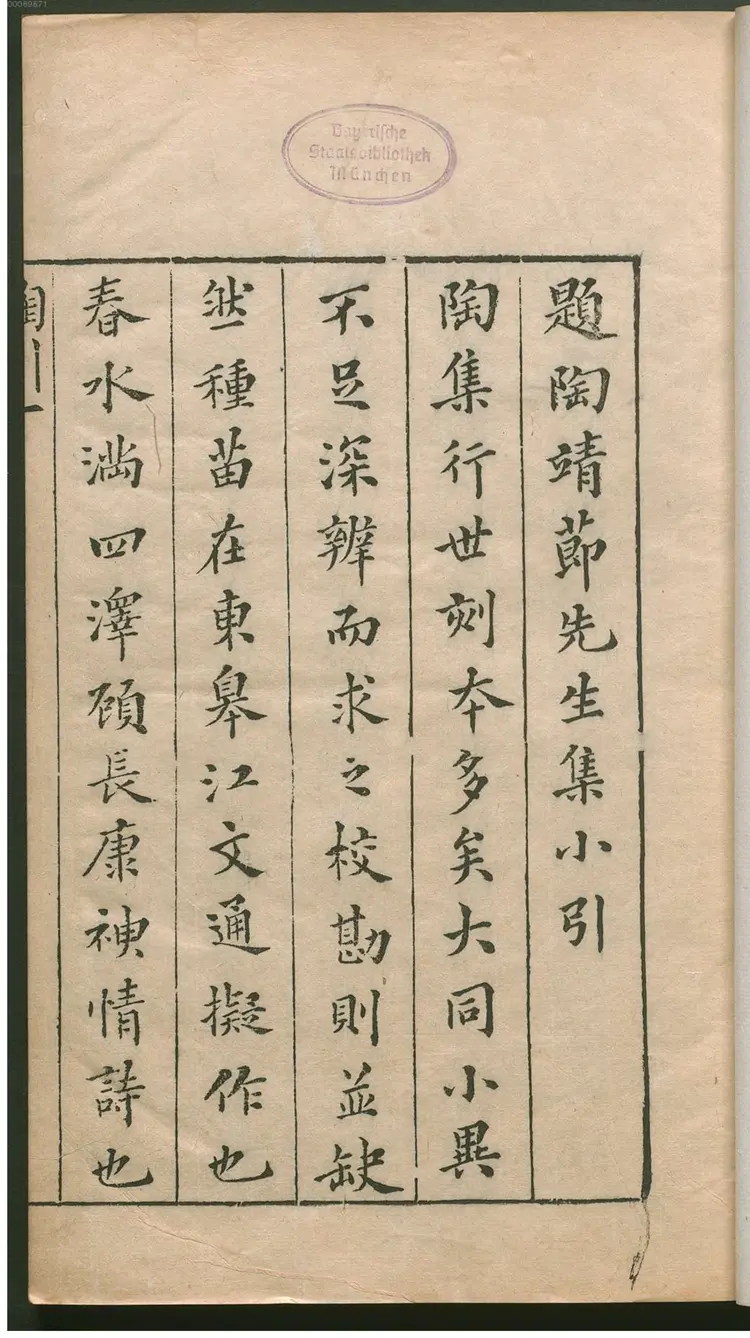 00089871
Bayerische
Staatsbibliothek
München
題陶靖節先生集小引
陶集行世刻本多矣大同小異
不足深辨而求之校勘則並缺
然種苗在東皋江文通擬作也
春水満四澤顧長康神情詩也
陶引一